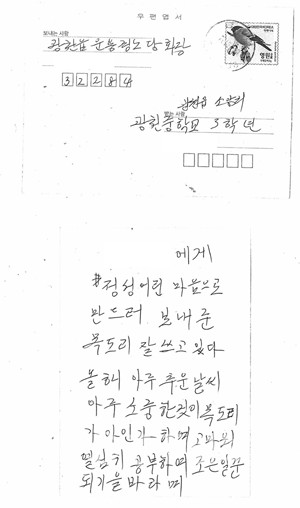 우편엽서
보내는사람
광천읍 운용경노당 회장
32284
광천읍 소암리
받는사람
광천중학교 3학년
에게
정성어린 마음으로
만드러 보내준
목도리 잘쓰고 있다
올해 아주 추운날씨
아주 소중한것이 목도리
가 아인가 하며 고마워
열심히 공부하며 조은일꾼
되기을 바라며